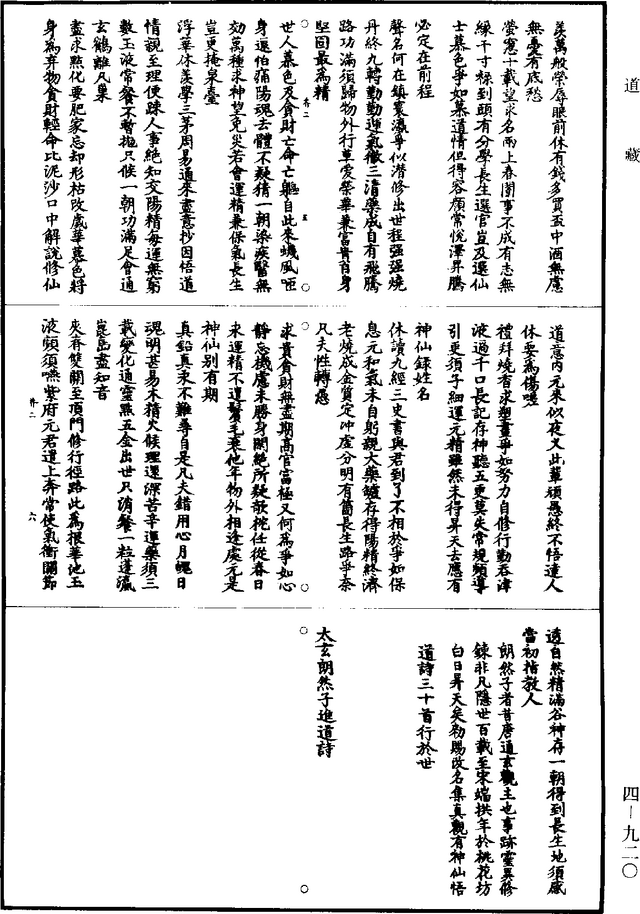 道藏
羨萬般榮辱眼前休有錢多買盃中酒無慮
無憂有底愁
螢窻十載望求名兩上春闈事不成有志無
緣千寸祿到頭有分學長生選官豈及選仙
士慕色爭如慕道情但得容顏常悅澤昇騰
必定在前程
聲名何在鎮寰瀛爭似潛修出世程強強燒
丹終九轉勤勤運氣徹三清藥成自有飛騰
路功滿須歸物外行車愛榮華兼富貴自身
堅固最爲精
世人慕色及貪財亡命亡軀自此來蟣風咂
身還怕痛陽魂去體不疑猜一朝染疾醫無
効萬種求神望免災若會運精兼保氣長生
豈更掩泉臺
浮華休羨學三茅周易通來盡意抄因悟道
情親至理便疎人事絕知交陽精每運無窮
數玉液常餐不暫抛只候一朝功滿足會通
玄鶴離凡巢
盡求點化要肥家忘却形枯改歲華慕色將
身爲弃物貪財輕命比泥沙口中解說修仙
道意內元來似夜叉此輩頑愚終不悟達人
休要爲傷嗟
禮拜燒香求塑畫爭如努力自修行勤吞津
液過千口長記存神聽五更莫失常規頻導
引更須子細運元精雖然未得昇天去應有
神仙録姓名
休讀九經三史書與君到了不相於爭如保
息元和氣未自躬親大藥爐存得陽精終濟
老燒成金質定沖虛分明有箇長生路爭奈
凡夫性轉愚
求貴貪財無盡期高官富極又何爲爭如心
靜忘機慮未勝身閑絕所疑敬捥任從春日
來運精不遣鬢毛衰他年物外相逢處元是
神仙別有期
真鉛真汞不難尋自是凡夫錯用心月魄日
魂明甚易木精火候理還深苦辛運藥須三
載變化通靈點五金出世只消餐一粒蓬瀛
崑島盡知音
夾脊雙關至頂門修行徑路此爲根華池玉
液頻須嚥紫府元君道上奔常使氣衝關節
透自然精滿谷神存一朝得到長生地須感
當初指教人
朗然子者昔唐通玄觀主也事跡靈異修
鍊非凡隱世百載至宋端拱年於桃花坊
白日昇天矣勑賜改名集真觀有神仙悟
道詩三十首行於世
太玄朗然子進道詩
四－九二〇